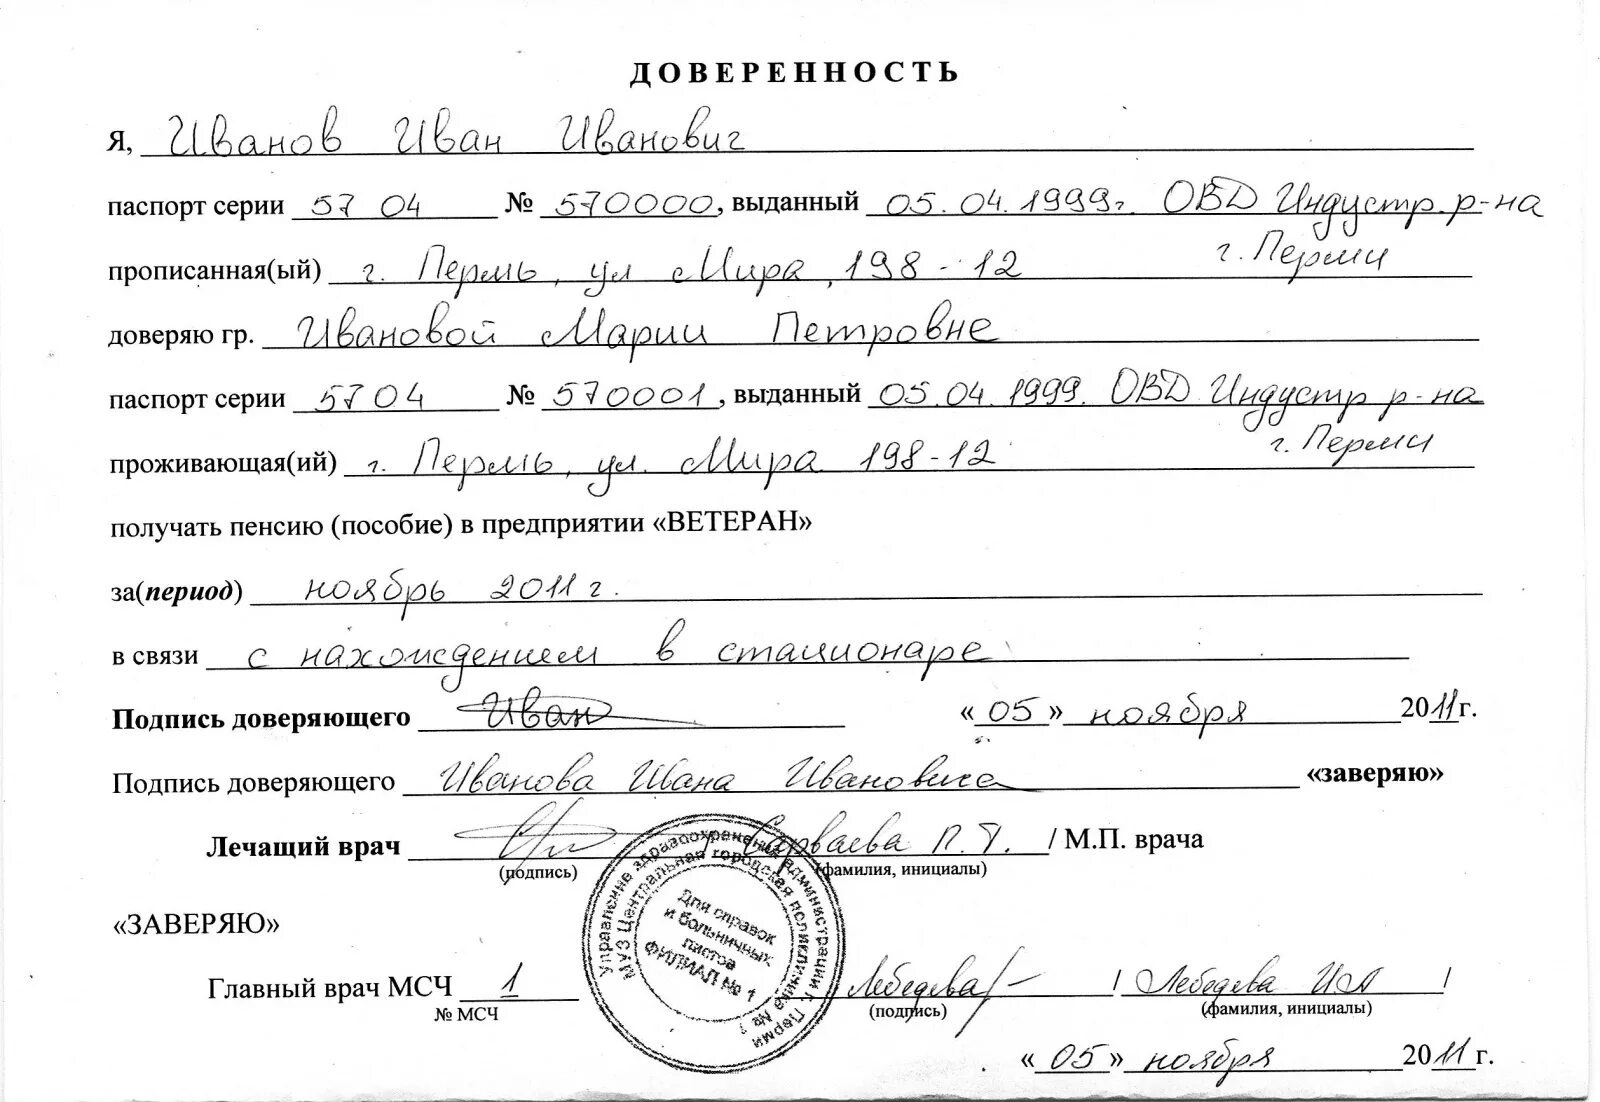 ДОВЕРЕННОСТЬ
Я, Иванов Иван Иванович
паспорт серии 57 04 № 570000, выданный 05.04.1999г. ОВД Индустр. р-на
г. Перми
прописанная(ый) г. Пермь, ул Мира, 198-12
доверяю гр. Ивановой Марии Петровне
паспорт серии 5704 № 570001, выданный 05.04.1999. ОВД Индустр р-на
г. Перми
проживающая(ий) г. Пермь, ул. Мира 198-12
получать пенсию (пособие) в предприятии «ВЕТЕРАН»
за(период) ноябрь 2011 г.
в связи с нахождением в стационаре
Подпись доверяющего Иван «05» ноября 2011г.
Подпись доверяющего Иванова Ивана Ивановича «заверяю»
Лечащий врач П.Т. / М.П. врача
(подпись) (фамилия, инициалы)
«ЗАВЕРЯЮ»
Управление здравоохранения администрации г. Перми
МУЗ Центральная городская поликлиника № 1
Для справок
и больничных
листов
ФИЛИАЛ № 1
Главный врач МСЧ 1 Лебедева / Лебедева И А /
№ МСЧ (подпись) (фамилия, инициалы)
«05» ноября 2011г.